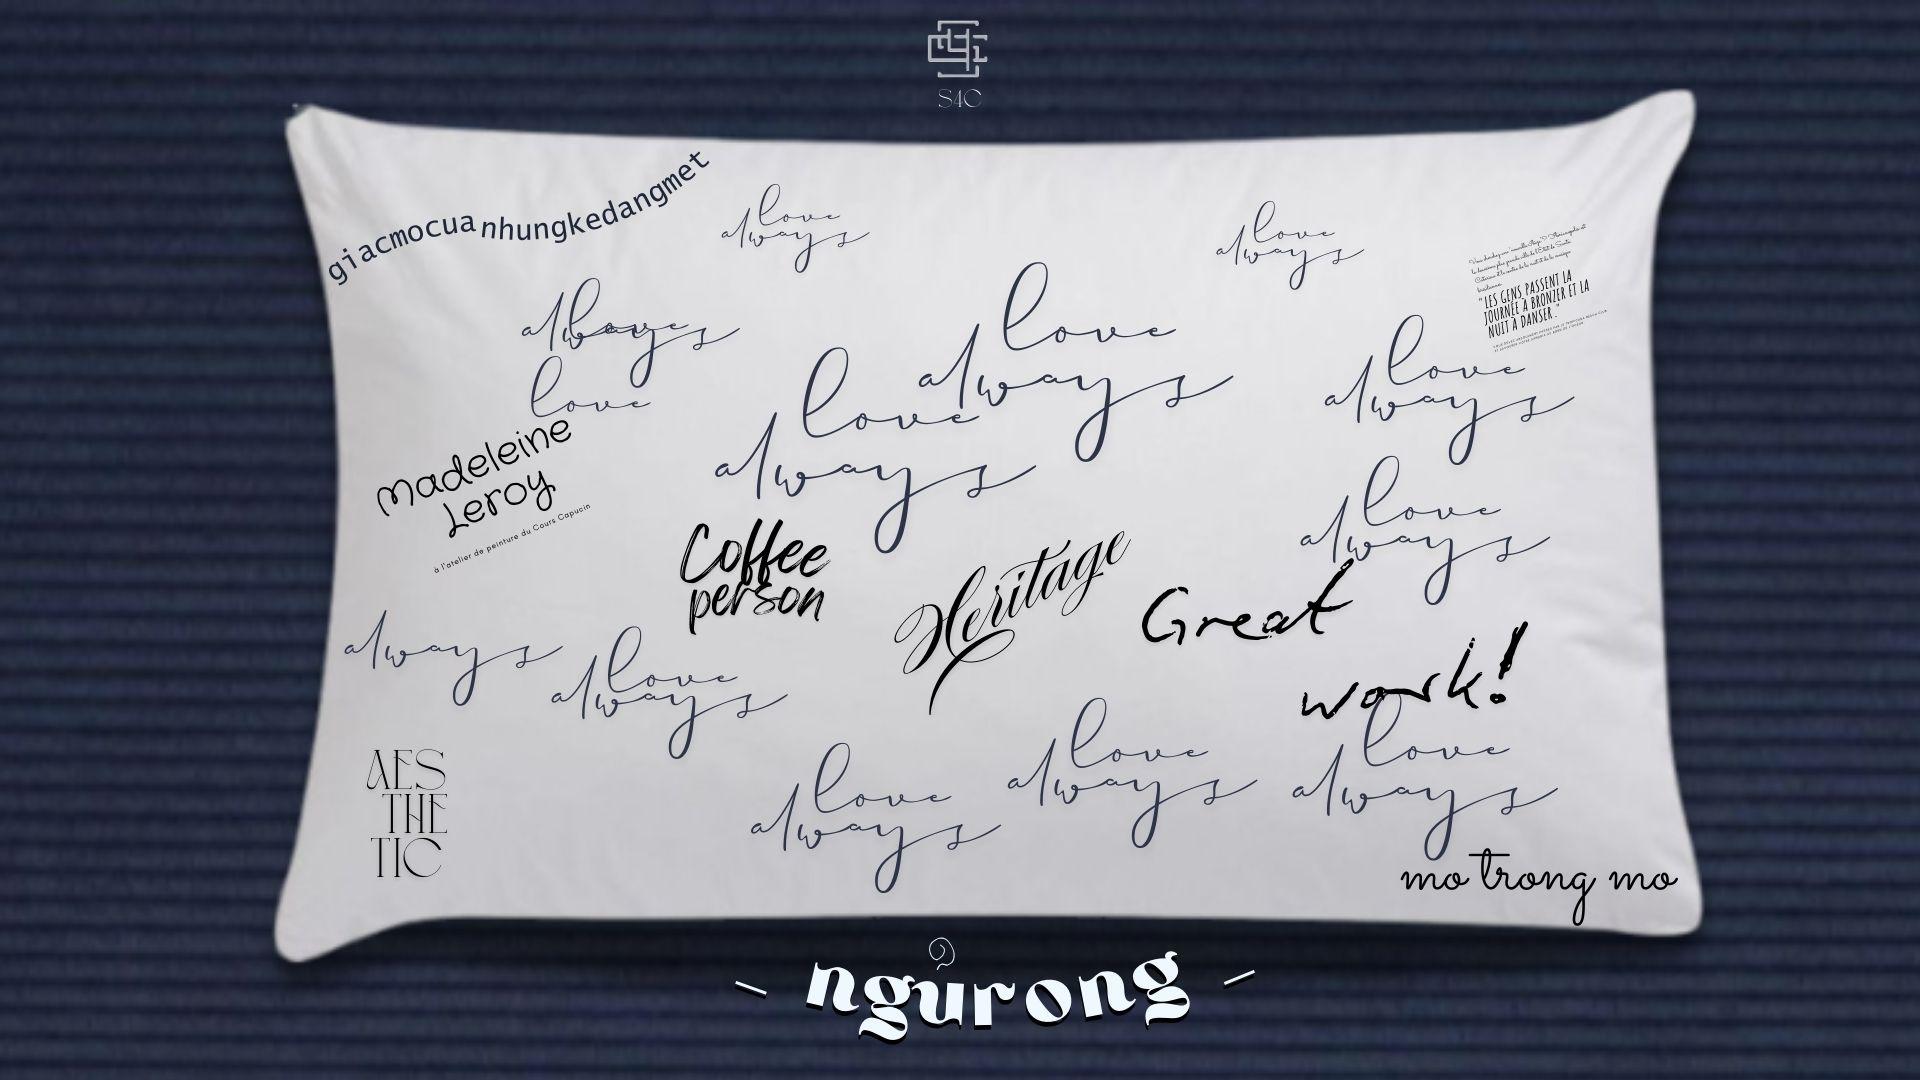 S4C
giacmocua nhungkedangmet
love
always
love
always
love
always
love
love
always
love
always
love
always
Madeleine
Leroy
à l'atelier de peinture du Cours Capucin
"LES GENS PASSENT LA
JOURNÉE À BRONZER ET LA
NUIT À DANSER."
love
always
Coffee
person
Heritage
Great
work!
always
love
always
love
always
love
always
love
always
AES
THE
TIC
mo trong mo
- ngủrong -